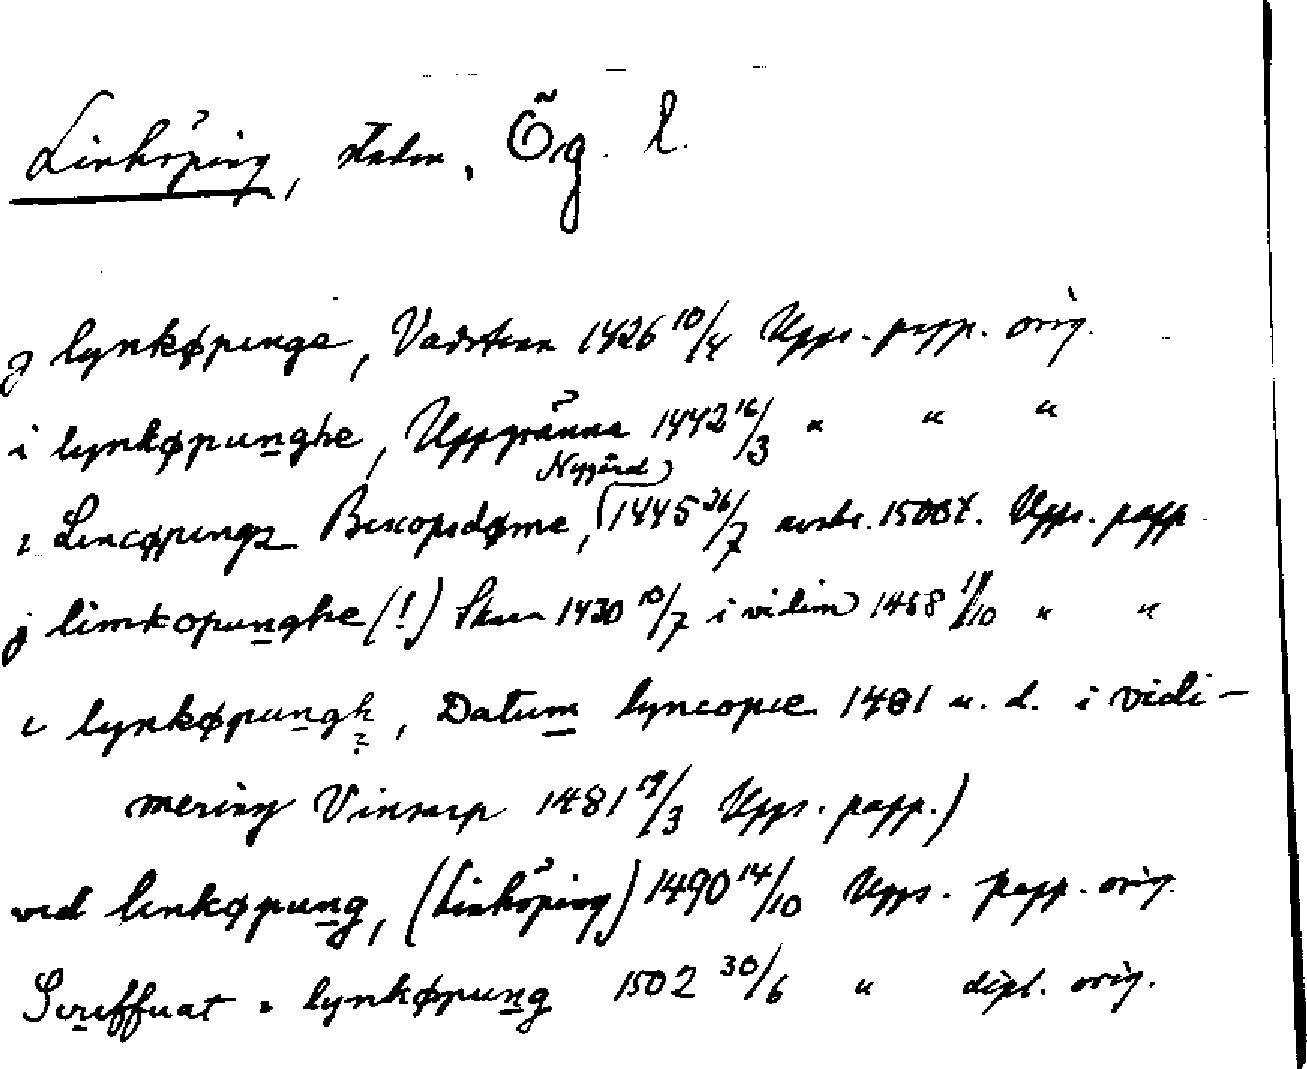 Linköping, staden, Ög. l.
j lynkøpinge, Vadstena 1426 10/4 Upps. papp. orig.
i lynkøpunghe, Uppgränna 1442 16/3 " " "
Nygård
i Lincøpungx Biscopsdøme, 1445 26/7 avskr. 1500t. Upps. papp
j limkopunghe (!) Skara 1430 10/7 i vidim 1468 1/10 " "
i lynkøpungh, Datum lyncopie 1481 u. d. i vidi-
mering Vinsarp 1481 19/3 Upps. papp.)
vid linkøpung, (Linköping) 1490 14/10 Upps. papp. orig.
Scriffuat i lynkøpung 1502 30/6 " dipl. orig.